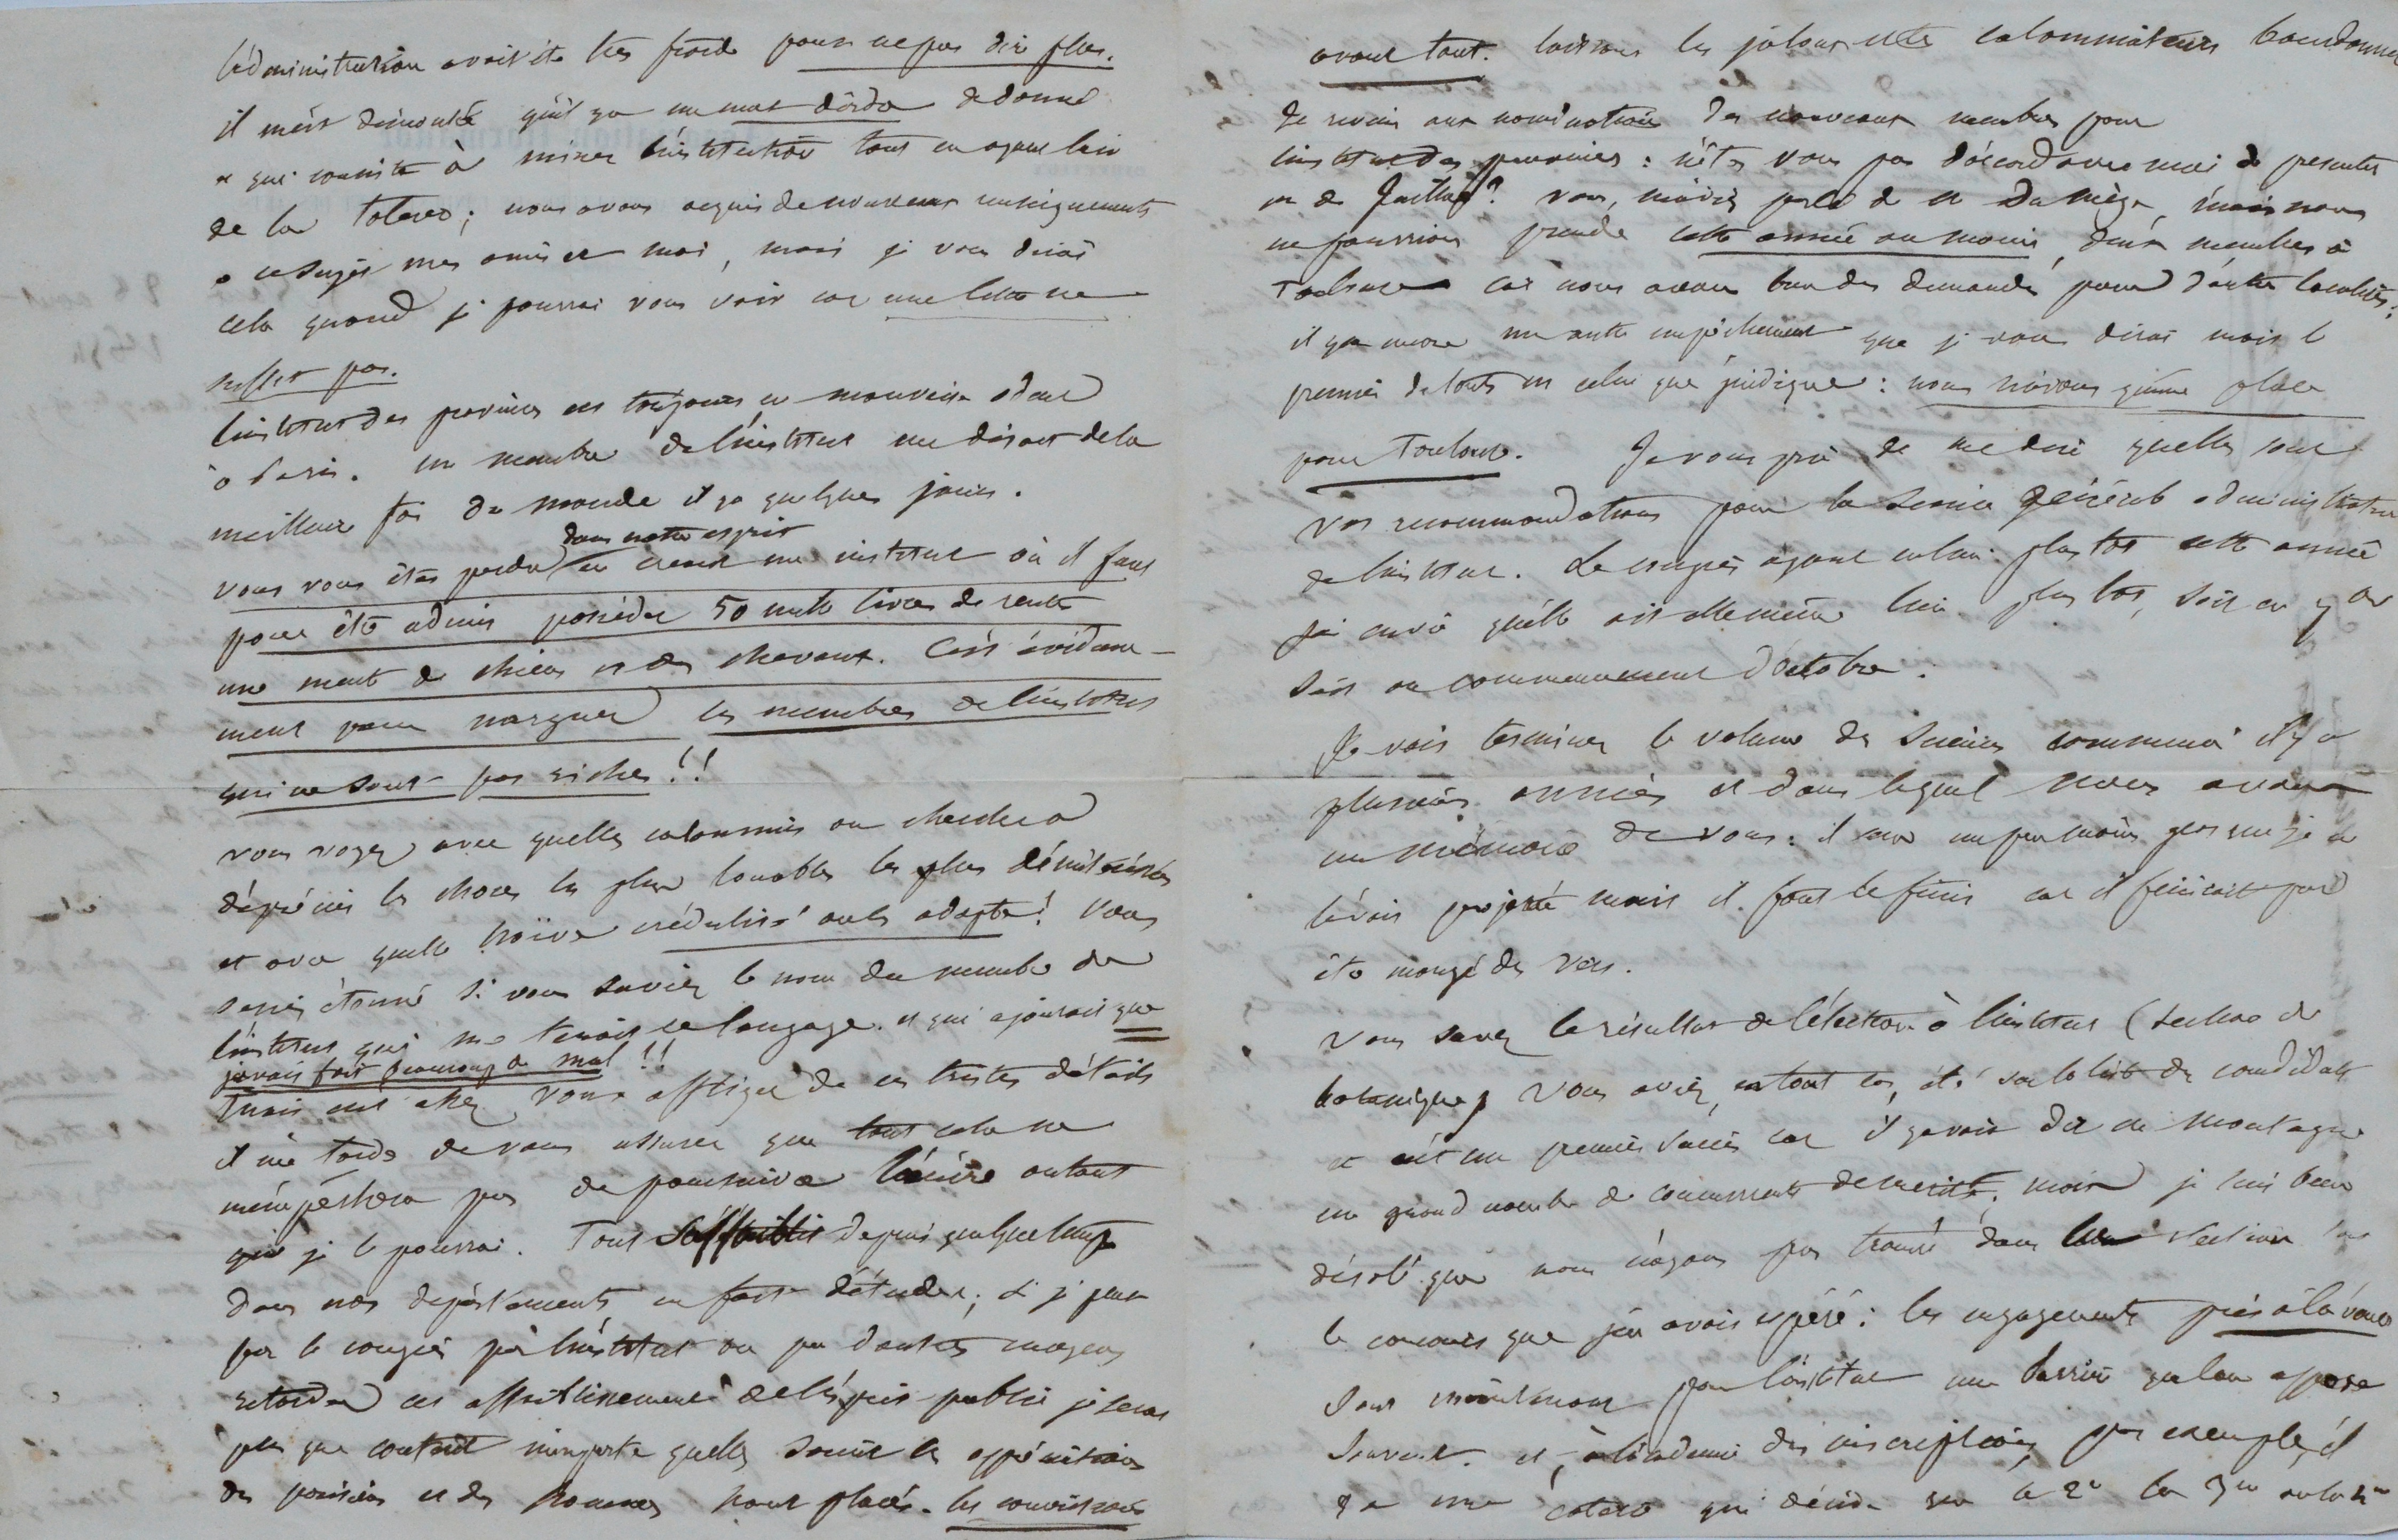 l'administration avait été très froide pour ne pas dire plus.
il m'est démontré qu'il y a un mot d'ordre de donné
et qui consiste à miner l'institution tout en ayant l'air
de la tolérer; nous avons acquis de nouveaux renseignements
à ce sujet mes amis et moi, mais je vous dirai
cela quand je pourrai vous voir car une lettre ne
suffit pas.
l'institut des provinces est toujours en mauvaise odeur
à Paris. un membre de l'institut me disait de la
meilleure foi du monde il y a quelques jours.
dans notre esprit
vous vous êtes perdu en créant un institut où il faut
pour être admis posséder 50 mille livres de rente
une meute de chiens et des chevaux. C'est évidem-
ment pour narguer les membres de l'institut
qui ne sont pas riches!!
vous voyez avec quelles calomnies on cherche à
déprécier les choses les plus louables les plus désintéressées
et avec quelle naïve crédulité on les adopte! Vous
seriez étonné si vous saviez le nom du membre de
l'institut qui me tenait ce langage. et qui ajoutait que
j'avais fait beaucoup de mal!!
mais c'est assez vous affliger de ces tristes détails
il me tarde de vous assurer que tout cela ne
m'empêchera pas de poursuivre l'œuvre autant
que je le pourrai. Tout s'affaiblit depuis quelque temps
dans nos départements en fait d'études; si je peux
par le congrès par l'institut ou par d'autres moyens
retarder cet affaiblissement de l'esprit public je serai
plus que content n'importe quelles soient les appréciations
des parisiens et des hommes haut placés. les convictions
avant tout. laissons les jaloux et les calomniateurs bourdonner
Je reviens aux nominations des nouveaux membres pour
l'institut des provinces: n'êtes vous pas d'accord avec moi de présenter
m de ? vous m'aviez parlé de m Du Mège, mais nous
ne pourrions prendre cette année au moins deux membres à
Toulouse car nous avons bien des demandes pour d'autres localités;
il y a encore un autre empêchement que je vous dirai mais le
premier de tous est celui que j'indique: nous n'avons qu'une place
pour Toulouse. Je vous prie de me dire quelles sont
vos recommandations pour la session générale administrative
de l'institut. Le congrès ayant eu lieu plus tôt cette année
j'ai envie qu'elle ait elle même lieu plus tôt, soit en 7bre
soit au commencement d'octobre.
Je vais terminer le volume des sciences commencé il y a
plusieurs années et dans lequel nous avons
un mémoire de vous: il sera un peu moins gros que je ne
l'avais projeté mais il faut le finir car il finirait par
être mangé des vers.
Vous savez le résultat de l'élection à l'institut (section de
botanique) Vous aviez, en tout cas, été sur la liste des candidats
et c'est un premier succès car il y avait dit m de Montagne
un grand nombre de concurrents de mérite; mais je suis bien
désolé que nous n'ayons pas trouvé dans la section
le concours que j'en avais espéré: les engagements pris à l'avance
sont maintenant pour l'institut une barrière qu'on oppose
souvent. et, à l'académie des inscriptions, par exemple, il
y a une coterie qui décide sur le 2e le 3me ou le 4me